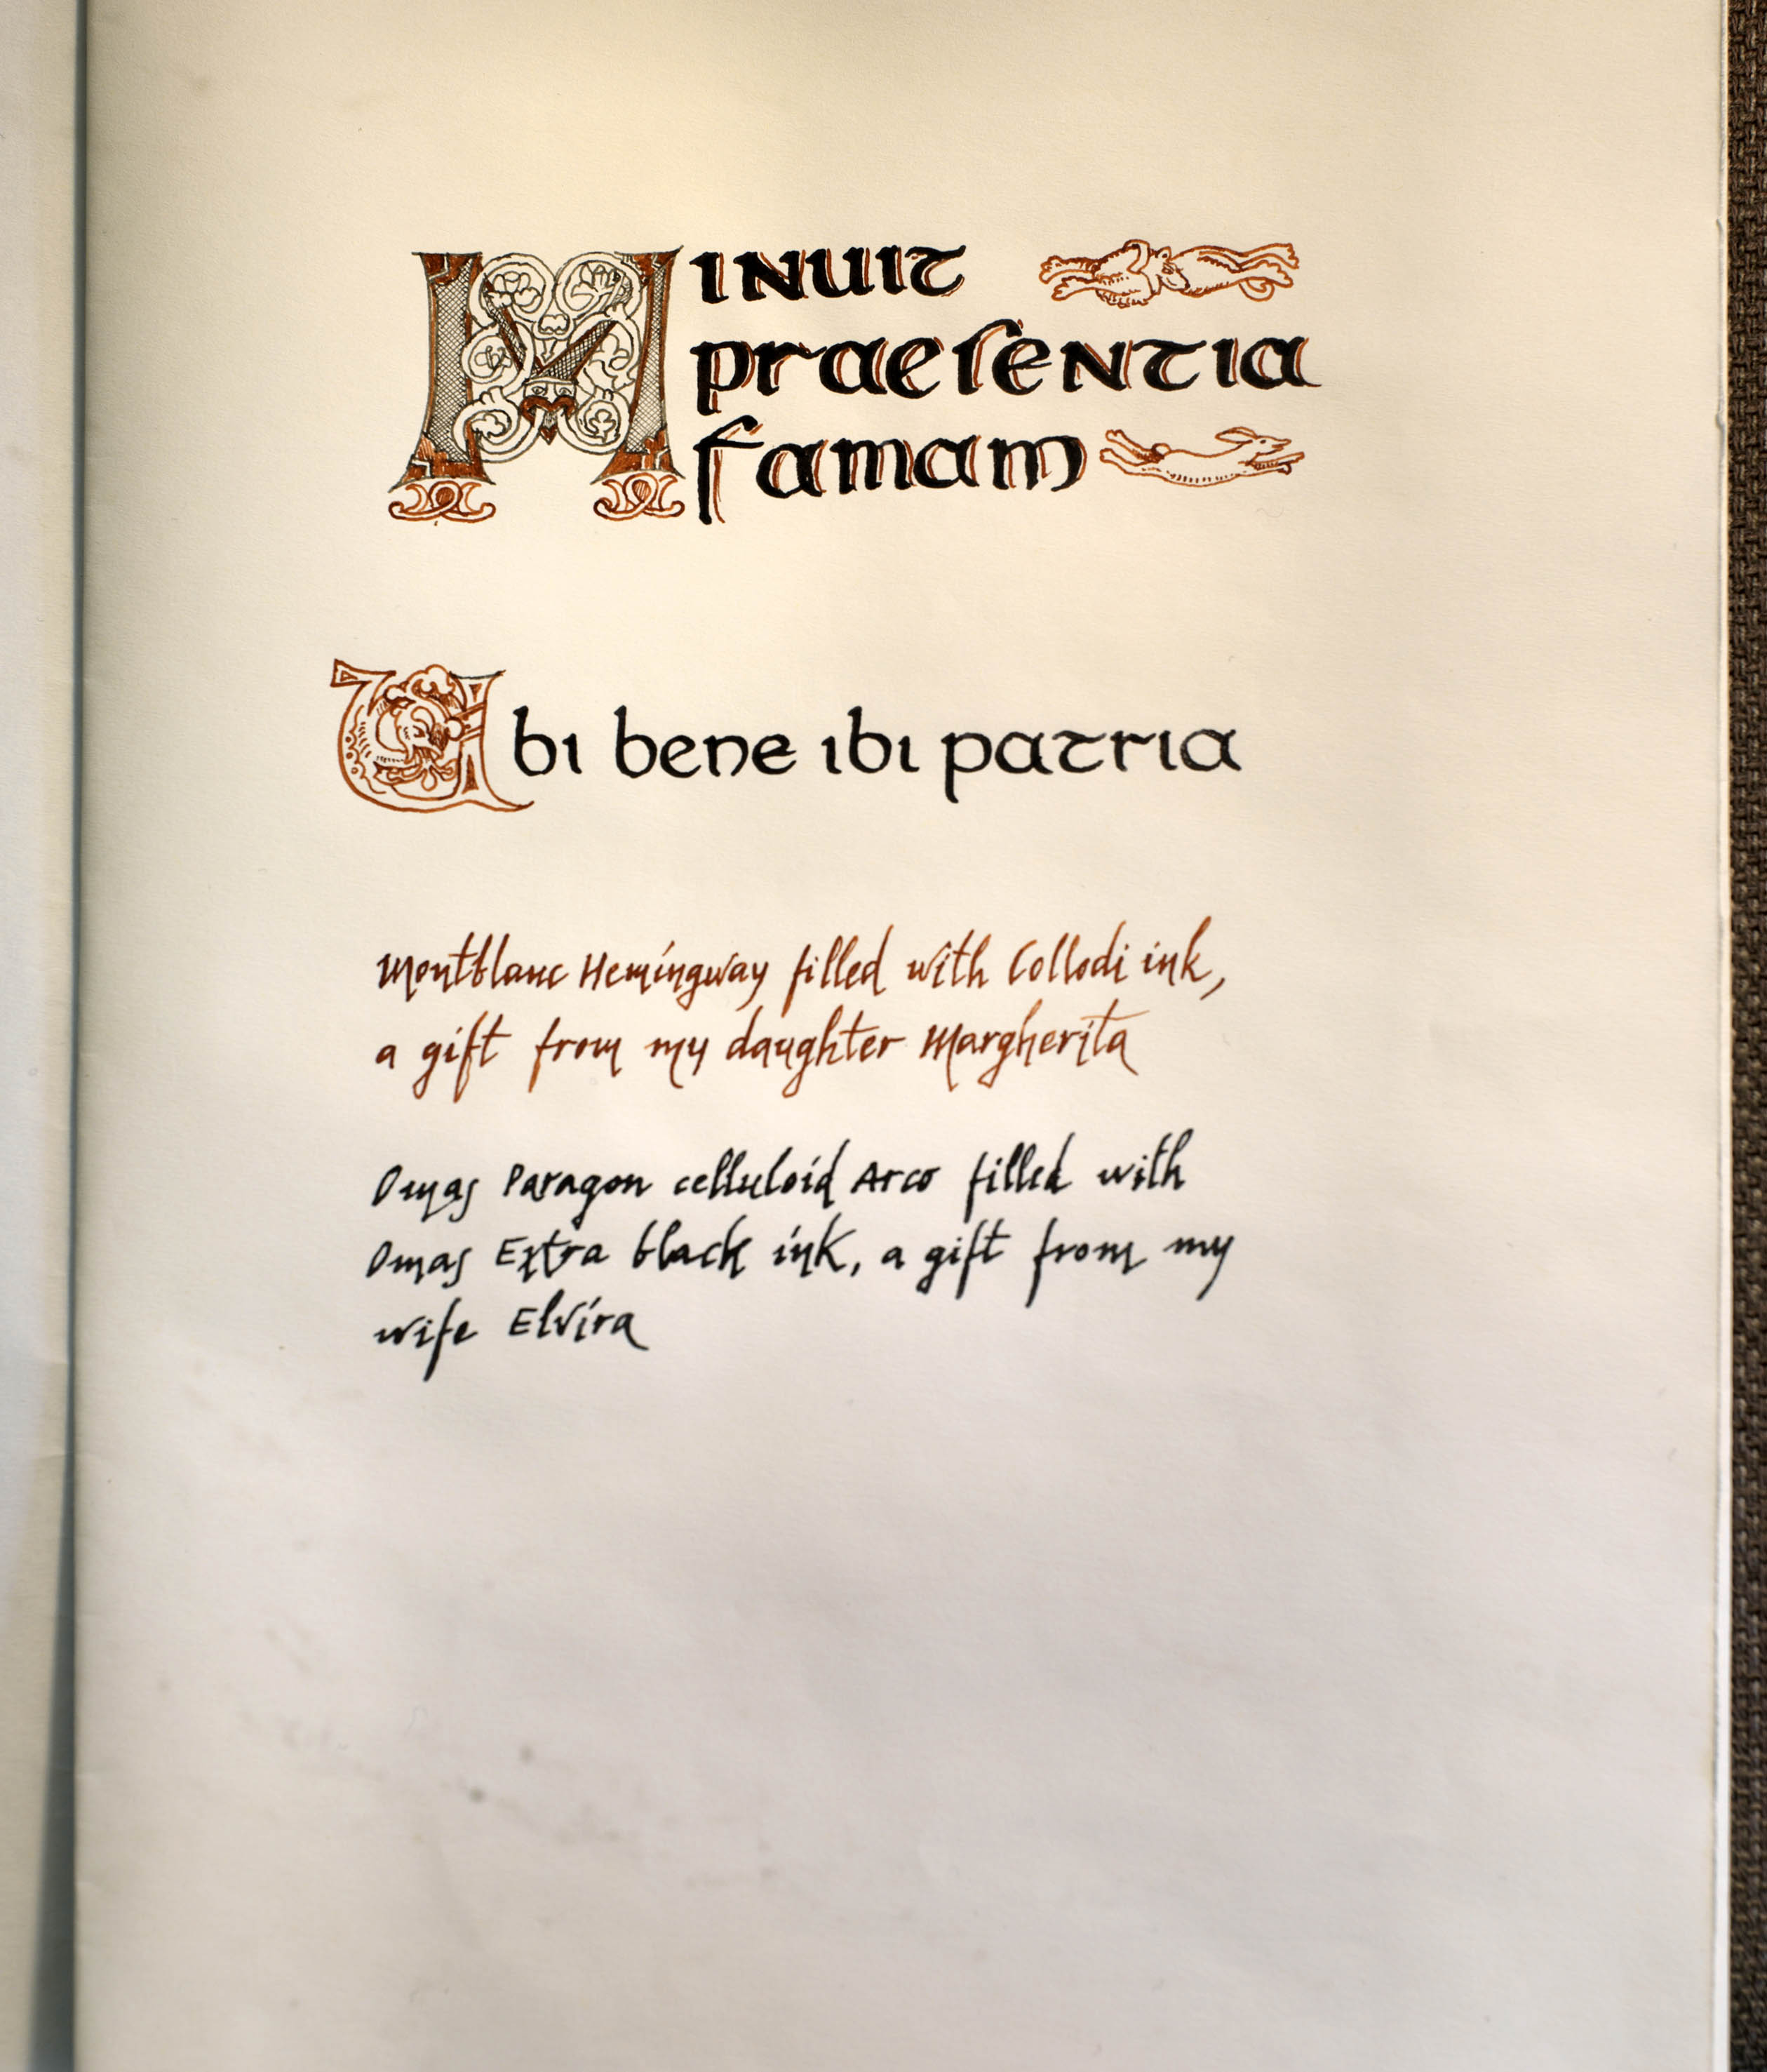 Minuit
praesentia
famam
Ubi bene ibi patria
Montblanc Hemingway filled with Collodi ink,
a gift from my daughter Margherita
Omas Paragon celluloid Arco filled with
Omas Extra black ink, a gift from my
wife Elvira